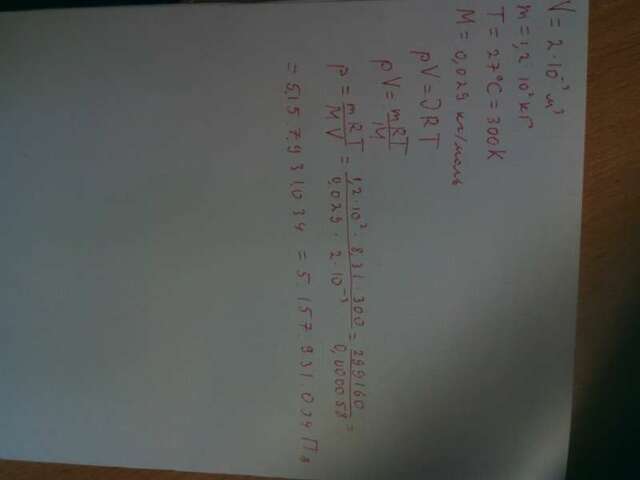 V = 2·10⁻³ м³
m = 1,2 10² кг
T = 27°C = 300К
M = 0,029 кг/моль
pV = νRT
pV = mRT/M
p = mRT/MV = 1,2·10²·8,31·300/0,029·2·10⁻³ = 299160/0,000058 =
= 5.157.931.034 = 5.157.931.034 Па